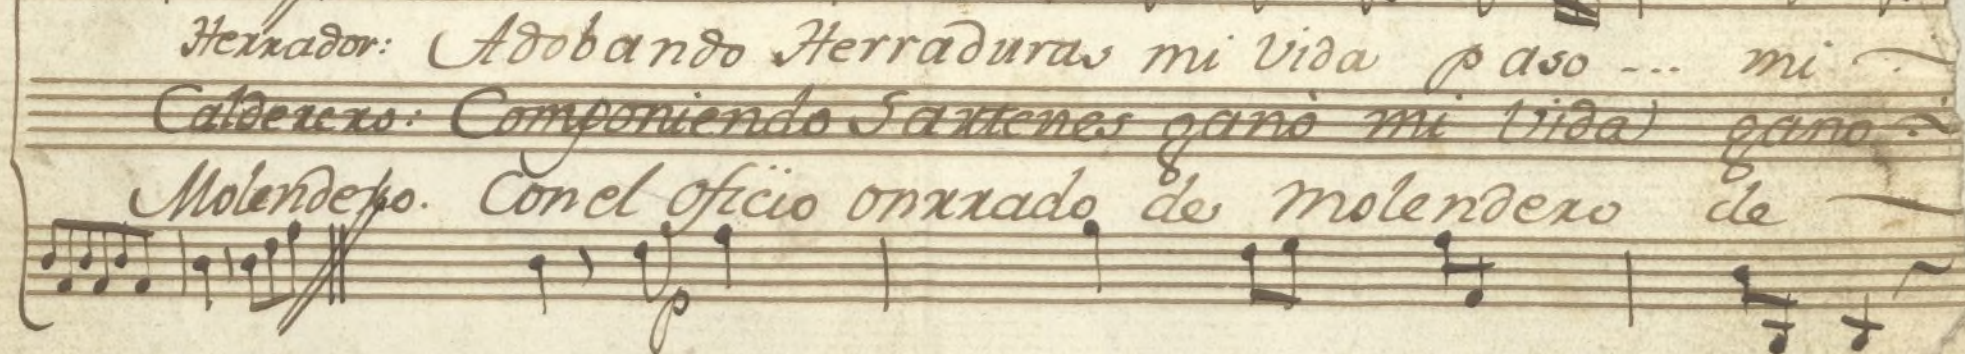 Herrador: Adobando Herraduras mi vida paso ... mi
Calderero: Componiendo Sartenes ganò mi vida gano
Molendero. Con el oficio onrrado de molendero de
p